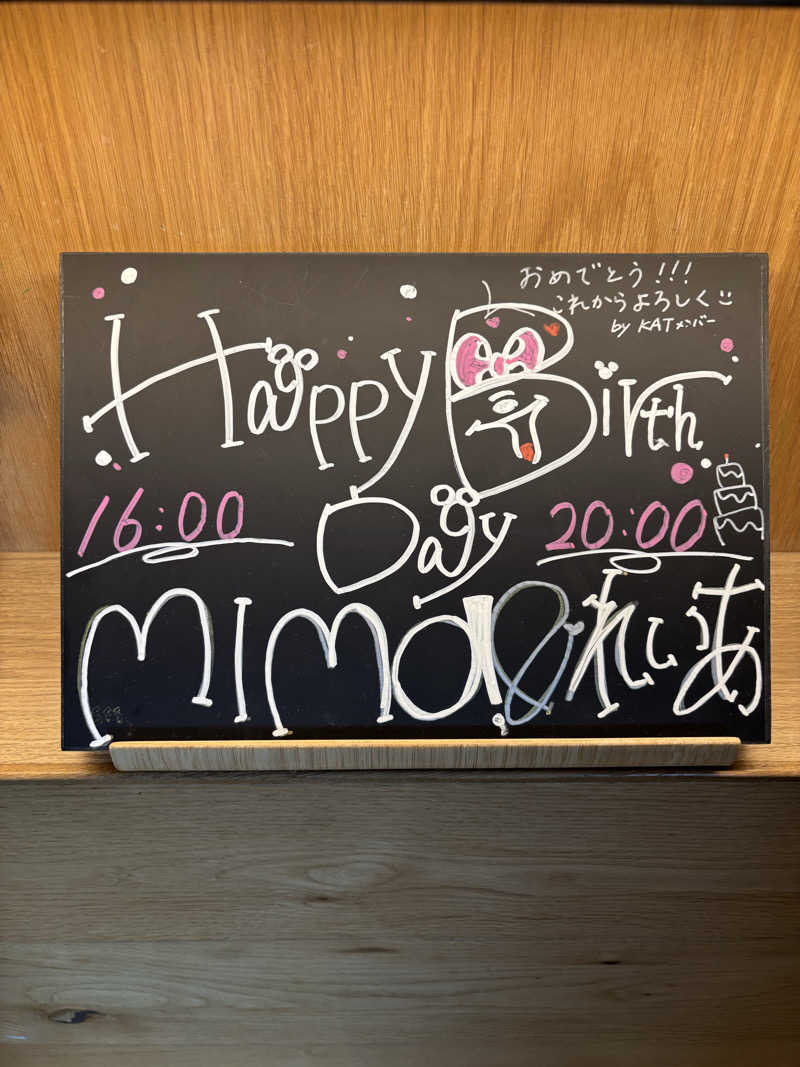 おめでとう!!!
これからよろしく
by KATメンバー
Happy Birth
Day
16:00
20:00
mima
れいあ